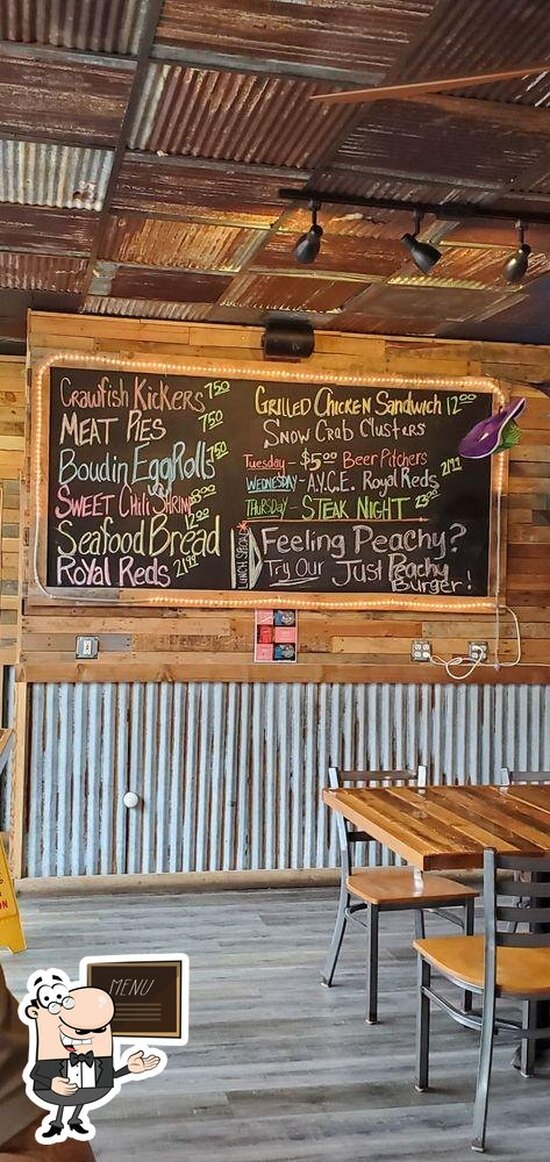 Crawfish Kickers 7.50
MEAT PIES 7.50
Boudin EggRolls 7.50
SWEET Chili Shrimp 8.00
Seafood Bread 12.00
Royal Reds 21.99
GRILLED CHICKEN SANDWICH 12.00
Snow Crab Clusters
Tuesday - $5.00 Beer Pitchers
WEDNESDAY - A.Y.C.E. Royal Reds 21.99
THURSDAY - STEAK NIGHT 23.00
LUNCH SPECIAL
Feeling Peachy?
Try Our Just Peachy
Burger!
MENU